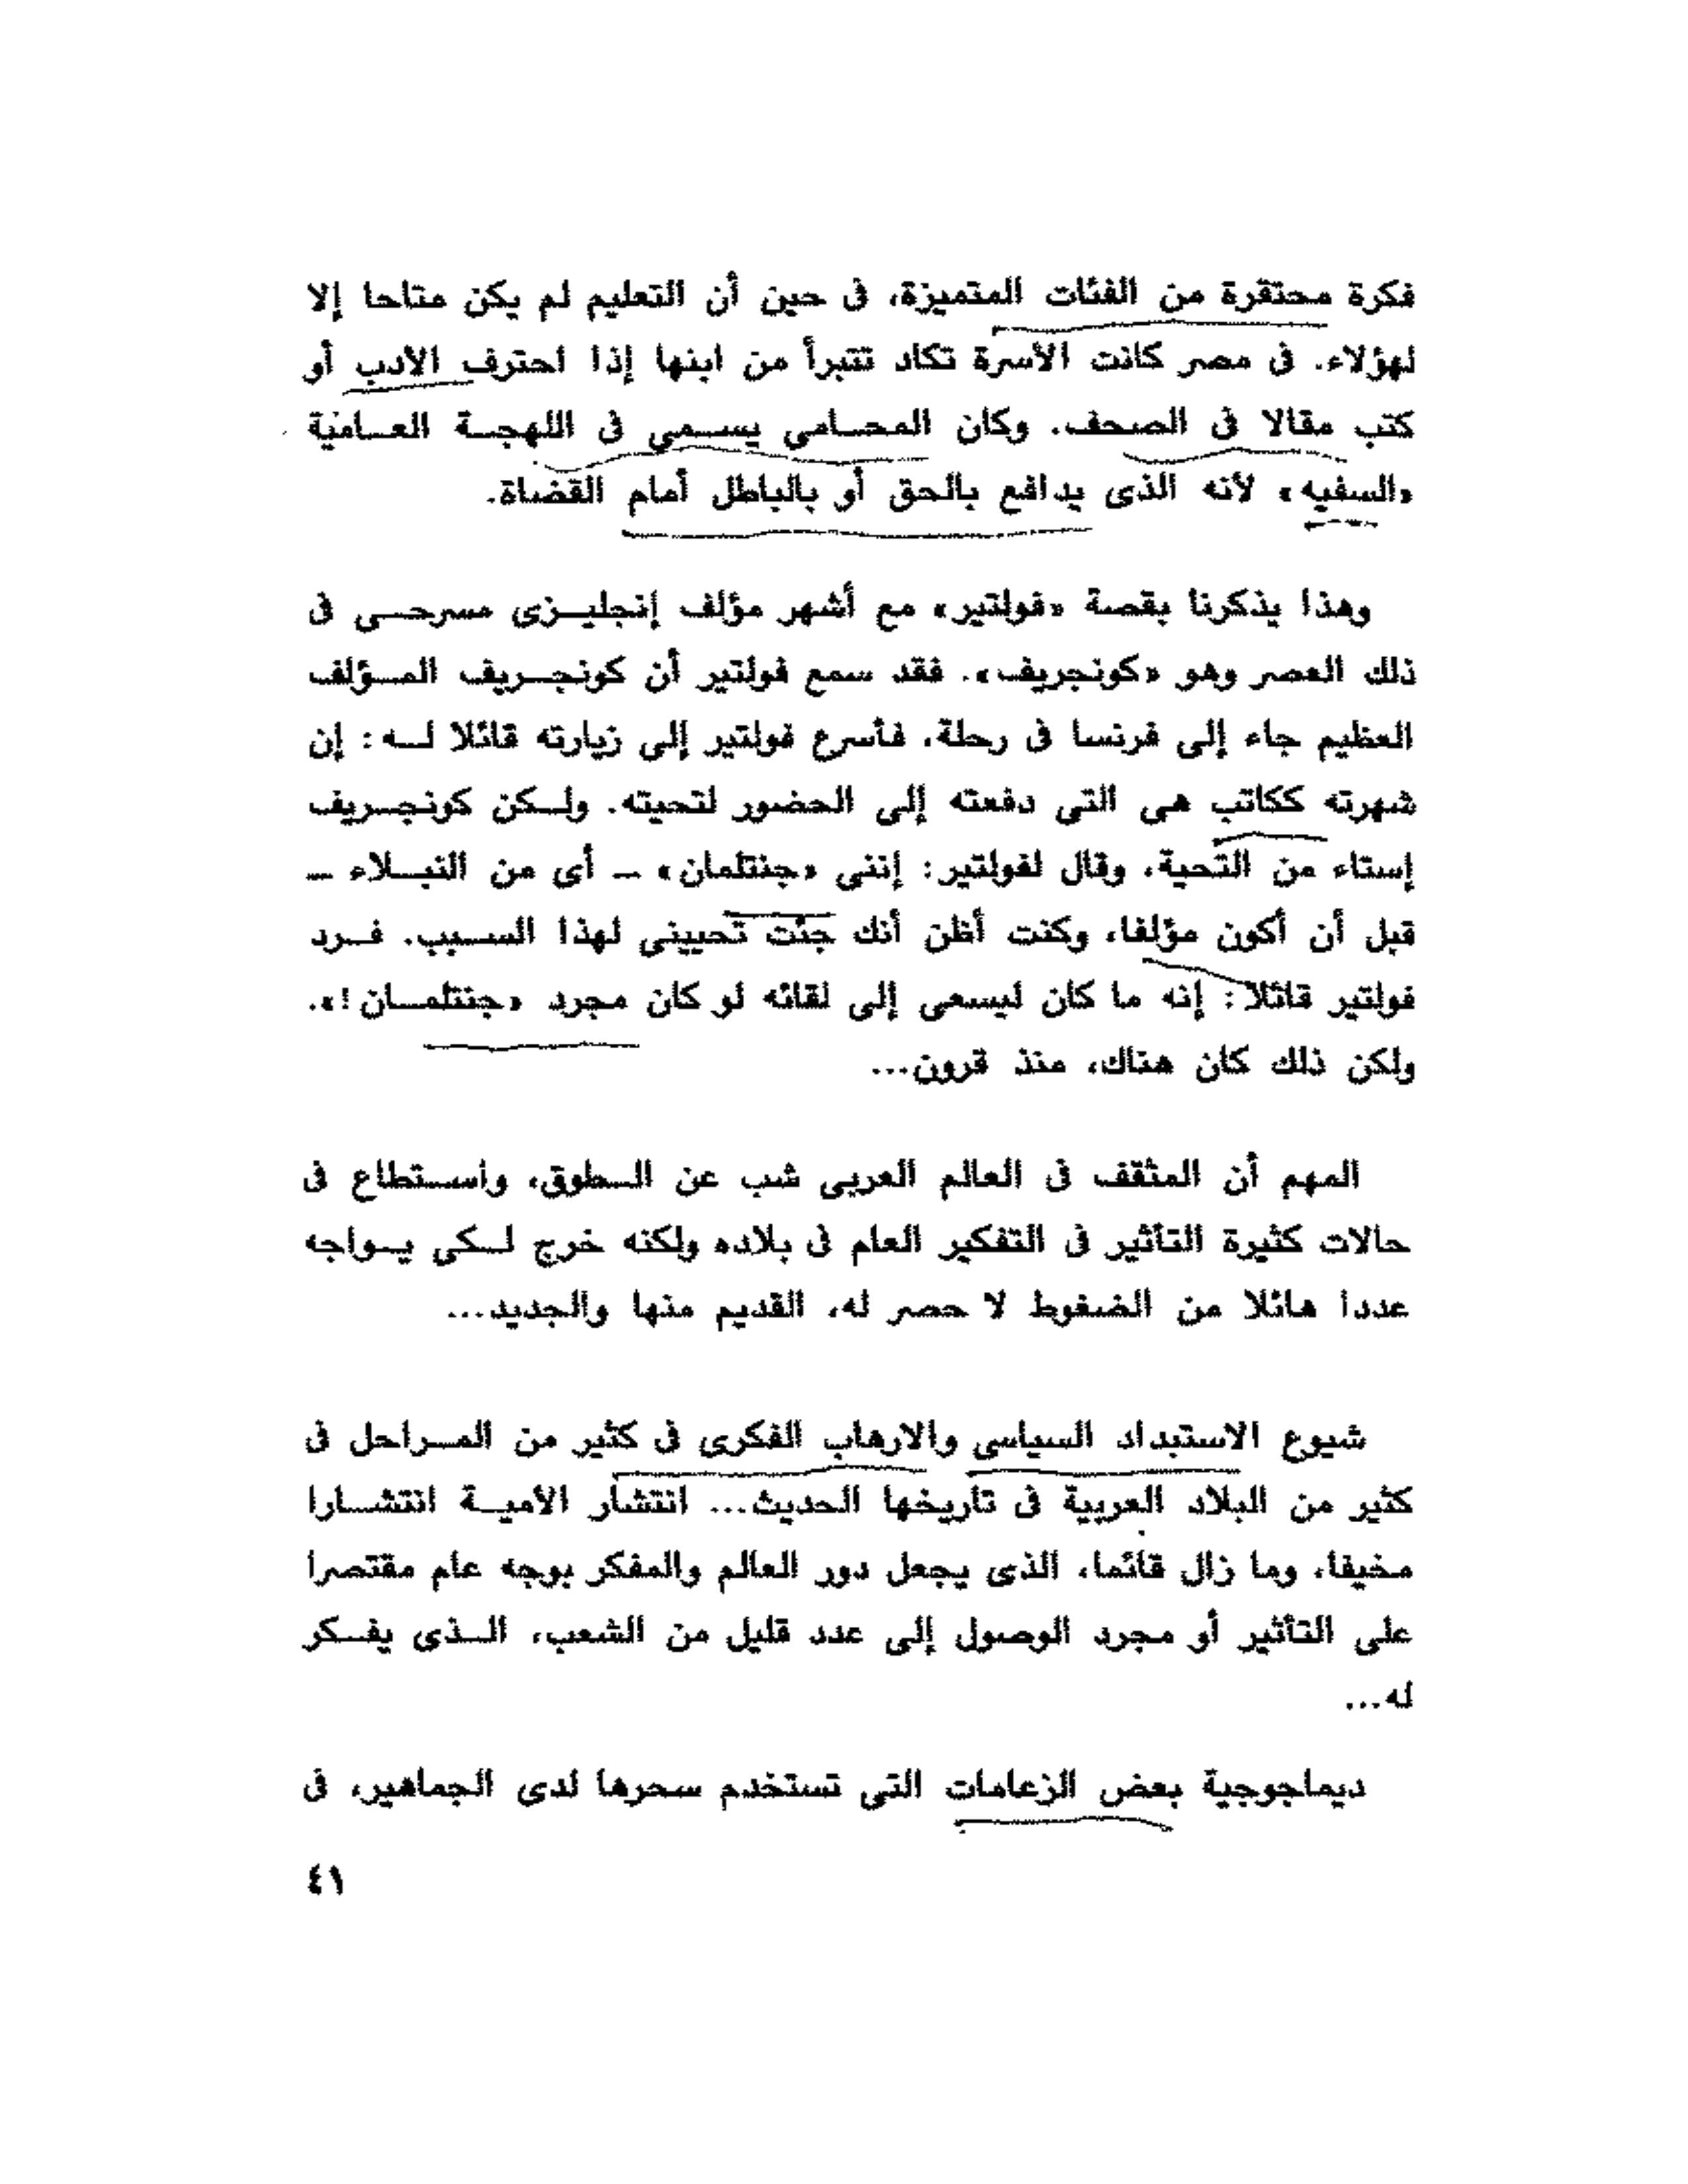 فكرة محتقرة من الفئات المتميزة، فى حين أن التعليم لم يكن متاحا إلا
لهؤلاء. فى مصر كانت الأسرة تكاد تتبرأ من ابنها إذا احترف الأدب أو
كتب مقالا فى الصحف. وكان المحامى يسمى فى اللهجة العامية
«السفيه» لأنه الذى يدافع بالحق أو بالباطل أمام القضاة.
وهذا يذكرنا بقصة «فولتير» مع أشهر مؤلف إنجليزى مسرحى فى
ذلك العصر وهو «كونجريف». فقد سمع فولتير أن كونجريف المؤلف
العظيم جاء إلى فرنسا فى رحلة، فأسرع فولتير إلى زيارته قائلا له: إن
شهرته ككاتب هى التى دفعته إلى الحضور لتحيته. ولكن كونجريف
إستاء من التحية، وقال لفولتير: إننى «جنتلمان» – أى من النبلاء –
قبل أن أكون مؤلفا، وكنت أظن أنك جئت تحيينى لهذا السبب. فرد
فولتير قائلا: إنه ما كان ليسعى إلى لقائه لو كان مجرد «جنتلمان!».
ولكن ذلك كان هناك، منذ قرون...
المهم أن المثقف فى العالم العربى شب عن الطوق، واستطاع فى
حالات كثيرة التأثير فى التفكير العام فى بلاده ولكنه خرج لكى يواجه
عددا هائلا من الضغوط لا حصر له، القديم منها والجديد...
شيوع الاستبداد السياسى والارهاب الفكرى فى كثير من المراحل فى
كثير من البلاد العربية فى تاريخها الحديث... انتشار الأمية انتشارا
مخيفا، وما زال قائما، الذى يجعل دور العالم والمفكر بوجه عام مقتصرا
على التأثير أو مجرد الوصول إلى عدد قليل من الشعب، الذى يفكر
له...
ديماجوجية بعض الزعامات التى تستخدم سحرها لدى الجماهير، فى
٤١